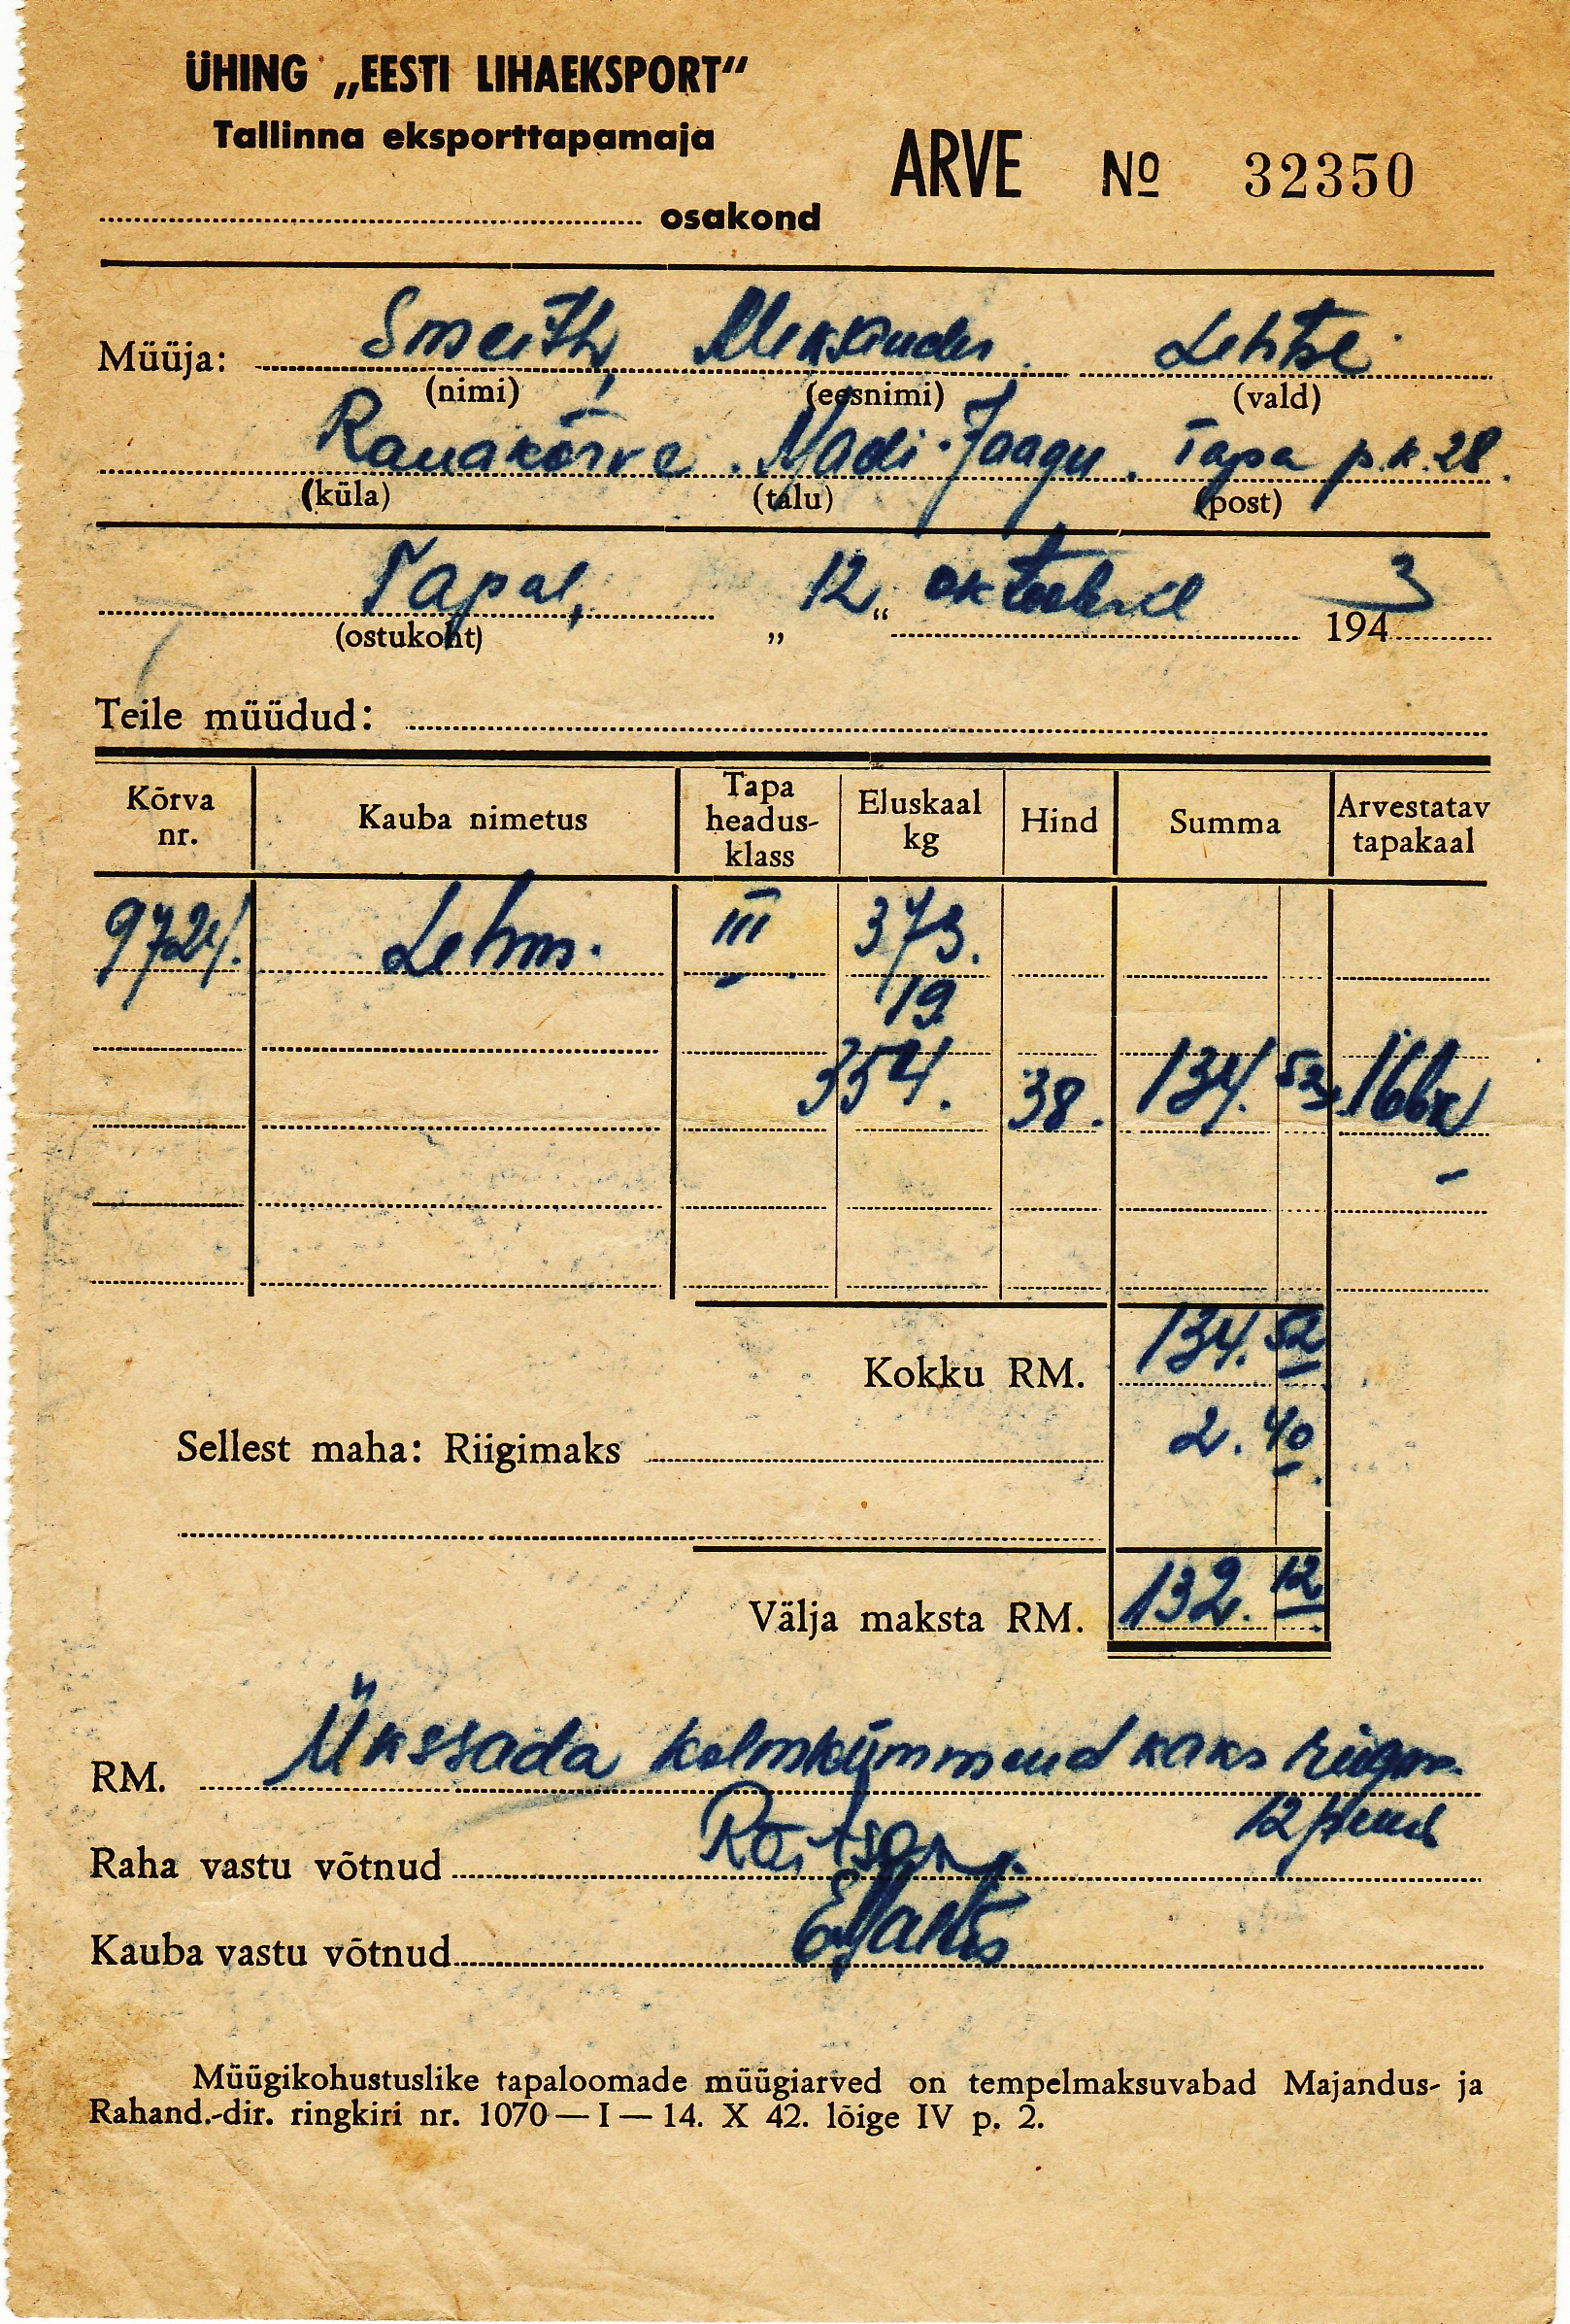 ÜHING „EESTI LIHAEKSPORT“
Tallinna eksporttapamaja
ARVE № 32350
osakond
Müüja: Smeith, Aleksander. Lehtse
(nimi) (eesnimi) (vald)
Rauakõrve. Madi-Jaagu. Tapa p.k. 28.
(küla) (talu) (post)
Tapal, „12“ oktoobril 1943
(ostukoht)
Teile müüdud:
Kõrva nr. Kauba nimetus Tapa headus-klass Eluskaal kg Hind Summa Arvestatav tapakaal
9724. Lehm. III 373.
19
354. 38. 134. 52
Kokku RM. 134. 52
Sellest maha: Riigimaks 2. 40
Välja maksta RM. 132. 12
RM. Ükssada kolmkümmend kaks riigm.
12 penni
Raha vastu võtnud
Kauba vastu võtnud
Müügikohustuslike tapaloomade müügiarved on tempelmaksuvabad Majandus- ja
Rahand.-dir. ringkiri nr. 1070 — I — 14. X 42. lõige IV p. 2.